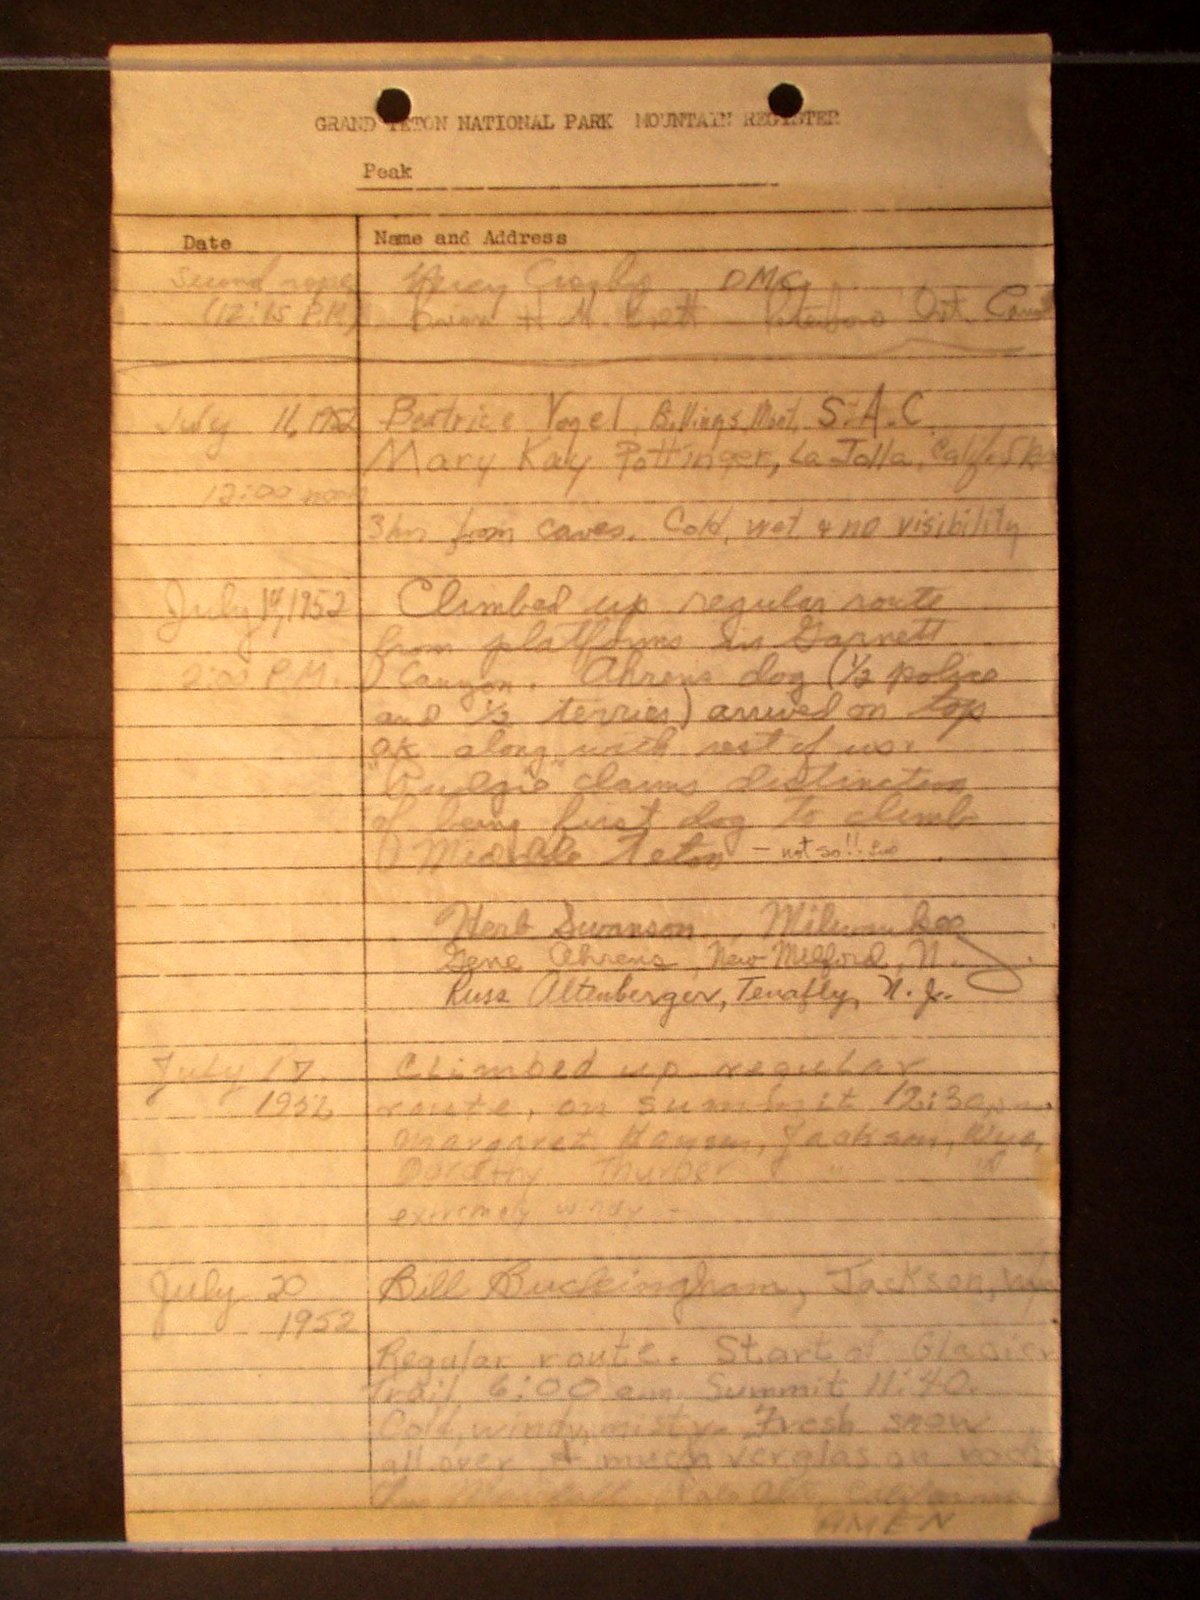 GRAND TETON NATIONAL PARK MOUNTAIN REGISTER
Peak
Date Name and Address
Second rope Crosby DMC
(12:15 P.M.) H. M. Ont.
July 11, 1952 Beatrice Vogel, Billings, Mont, S.A.C.
Mary Kay Pottinger, La Jolla, Calif.
12:00 noon
3 hrs from caves. Cold, wet & no visibility
July 14, 1952 Climbed up regular route
from platforms in Garnett
2:00 P.M. Canyon. Ahrens dog (1/2 police
and 1/2 terrier) arrived on top
ok along with rest of us.
claims distinction
of being first dog to climb
Middle Teton - not so!!
Herb Swanson, Milwaukee
Gene Ahrens, New Milford, N.J.
Russ Altenberger, Tenafly, N.J.
July 17 Climbed up regular
1952 route, on summit 12:30
Margaret Hansen, Jackson, Wyo.
Dorothy Thurber " "
extremely windy -
July 20 Bill Buckingham, Jackson, Wy
1952
Regular route. Start of Glacier
Trail 6:00 am. Summit 11:40.
Cold, windy, misty. Fresh snow
all over & much verglas on rocks
Palo Alto California
AMEN